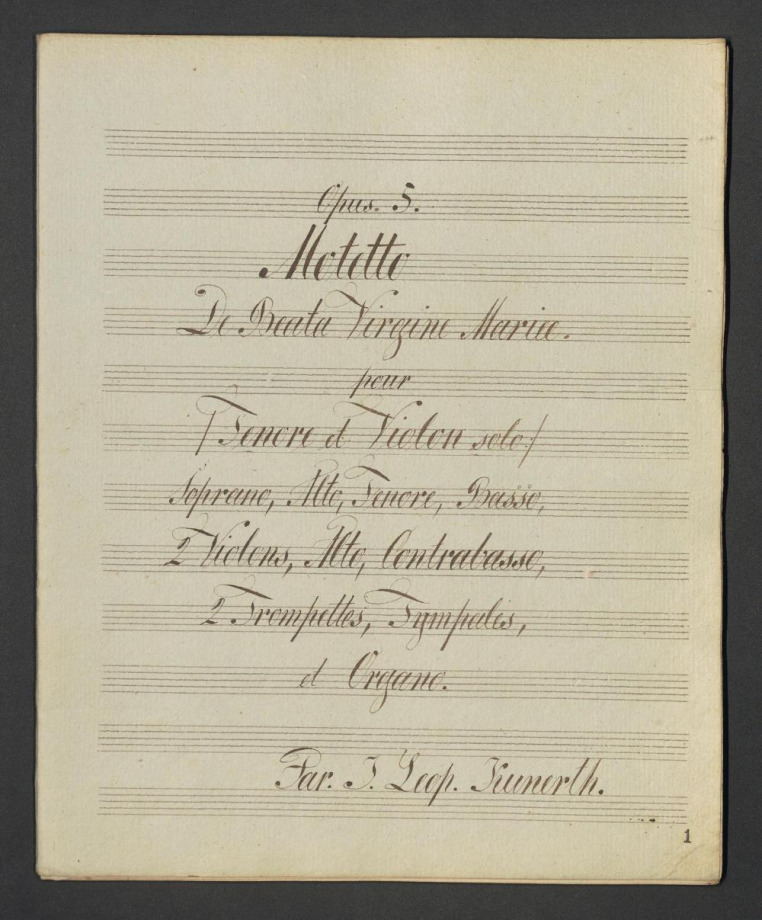 Opus. 5.
Motetto
De Beata Virgine Maria.
pour
/Tenore et Violon solo:/
Soprano, Alto, Tenore, Basso,
2 Violons, Alto, Contrabasso,
2 Trompettes, Tympalis,
et Organo.
Par. J. Leop. Kunerth.
1